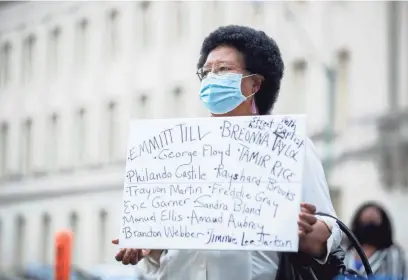 EMMITT TILL • BREONNA TAYLOR •
• George Floyd • TAMIR RICE
Philando Castile • Rayshard Brooks
Trayvon Martin • Freddie Gray
Eric Garner • Sandra Bland
Manuel Ellis • Amaud Aubrey
Brandon Webber • Jimmie Lee Jackson